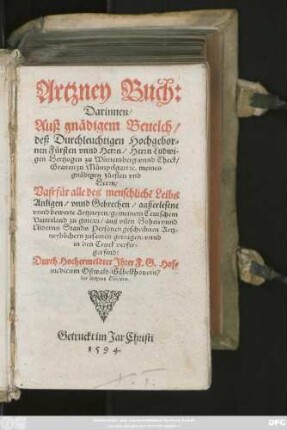 Artzney Buch:
Darinnen/
Auß gnädigem Beuelch/
deß Durchleuchtigen Hochgebor-
nen Fürsten vnnd Herrn/ Herrn Ludwi-
gen Hertzogen zu Würtemberg vnnd Theck/
Grauen zu Mümpelgartt/ meines
gnädigen Fürsten vnd
Herrn/
Vast für alle deß menschliche Leibs
Anligen/ vnnd Gebrechen/ außerlesene
vnnd bewerte Artzneyen/ gemeinem Teutschem
Vatterland zu gutem/ auß vilen Hohen vnnd
Nidern Stands Personen geschribnen Artz-
neybüchern zusamen getragen/ vnnd
in den Truck verfer-
get seind:
Durch Hochermeldter Ihrer F. G. Hof-
medicum Oßwald Gäbelkhouern/
der Artzney Doctorn.
Getruckt im Jar Christi
1594.